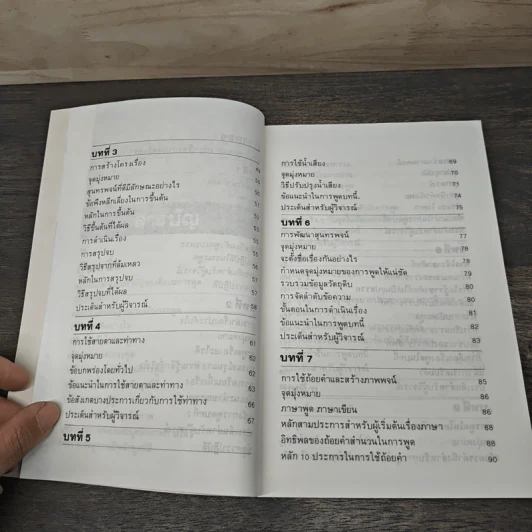 บทที่ 3
การสร้างโครงเรื่อง
จุดมุ่งหมาย
สุนทรพจน์ที่ดีมีลักษณะอย่างไร
ข้อพึงหลีกเลี่ยงในการขึ้นต้น
หลักในการขึ้นต้น
วิธีขึ้นต้นที่ได้ผล
การดำเนินเรื่อง
การสรุปจบ
วิธีสรุปจากที่ล้มเหลว
หลักในการสรุปจบ
วิธีสรุปจบที่ได้ผล
ประเด็นสำหรับผู้วิจารณ์ 58
บทที่ 4
การใช้สายตาและท่าทาง 61
จุดมุ่งหมาย 61
ข้อบกพร่องโดยทั่วไป 62
ข้อแนะนำในการใช้สายตาและท่าทาง 63
ข้อสังเกตบางประการเกี่ยวกับการใช้ท่าทาง 66
ประเด็นสำหรับผู้วิจารณ์ 67
บทที่ 5
การใช้น้ำเสียง 69
จุดมุ่งหมาย 70
วิธีปรับปรุงน้ำเสียง 71
ข้อแนะนำในการพูดบทนี้ 74
ประเด็นสำหรับผู้วิจารณ์ 75
บทที่ 6
การพัฒนาสุนทรพจน์ 77
จุดมุ่งหมาย 78
จะตั้งชื่อเรื่องกันอย่างไร 78
กำหนดจุดมุ่งหมายของการพูดให้แน่ชัด 79
รวบรวมข้อมูลวัตถุดิบ 80
การจัดลำดับข้อความ 80
ขั้นตอนในการดำเนินเรื่อง 81
ข้อแนะนำในการพูดบทนี้ 82
ประเด็นสำหรับผู้วิจารณ์ 83
บทที่ 7
การใช้ถ้อยคำและสร้างภาพพจน์ 85
จุดมุ่งหมาย 86
ภาษาพูด ภาษาเขียน 86
หลักสามประการสำหรับผู้เริ่มต้นเรื่องภาษา 88
อิทธิพลของถ้อยคำสำนวนในการพูด 88
หลัก 10 ประการในการใช้ถ้อยคำ 90